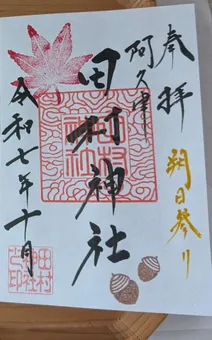 奉拝
阿久津
田村神社
令和七年十月
朔日参り
田村神社
田村神社之印